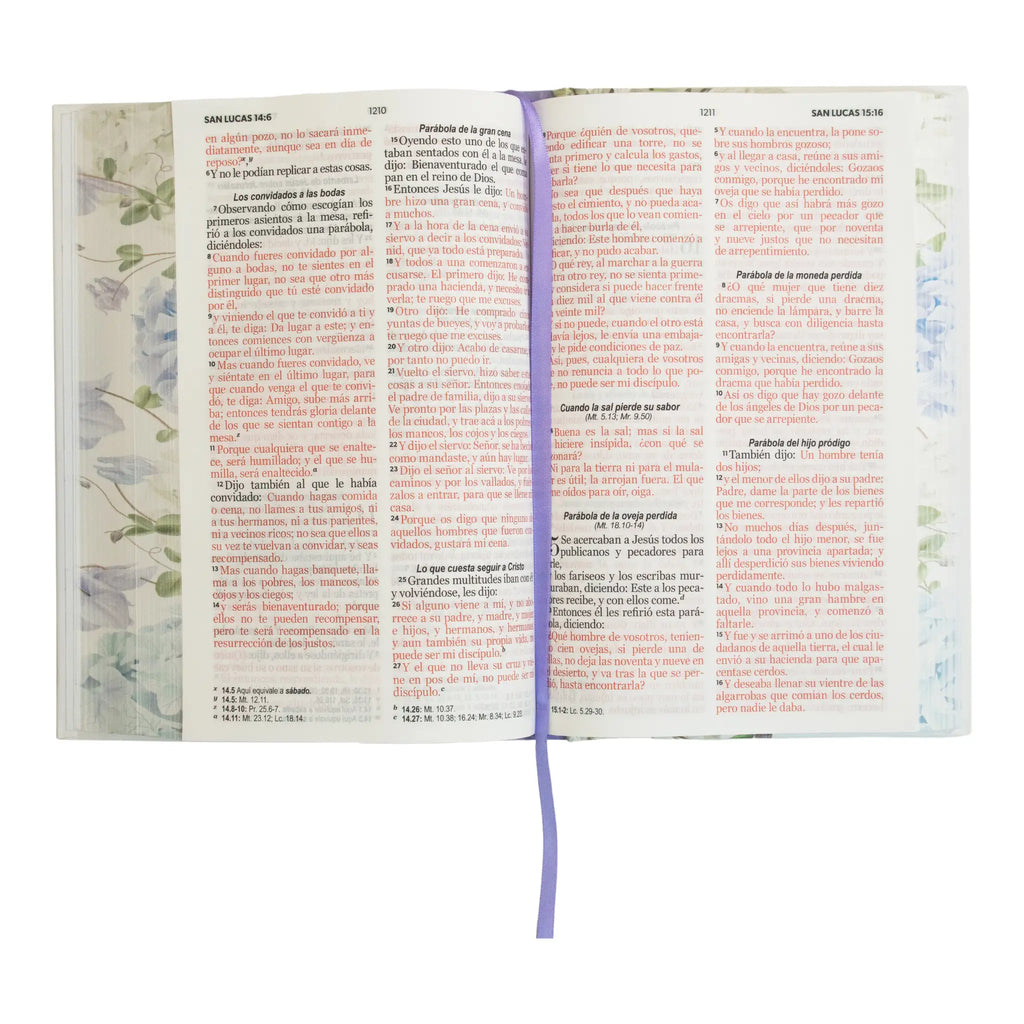 SAN LUCAS 14:6
1210
en algún pozo, no lo sacará inme-
diatamente, aunque sea en día de
reposo?x,y
6Y no le podían replicar a estas cosas.
Los convidados a las bodas
7Observando cómo escogían los
primeros asientos a la mesa, refi-
rió a los convidados una parábola,
diciéndoles:
8Cuando fueres convidado por al-
guno a bodas, no te sientes en el
primer lugar, no sea que otro más
distinguido que tú esté convidado
por él,
9y viniendo el que te convidó a ti y
a él, te diga: Da lugar a este; y en-
tonces comiences con vergüenza a
ocupar el último lugar.
10Mas cuando fueres convidado, ve
y siéntate en el último lugar, para
que cuando venga el que te convi-
dó, te diga: Amigo, sube más arri-
ba; entonces tendrás gloria delante
de los que se sientan contigo a la
mesa.z
11Porque cualquiera que se enalte-
ce, será humillado; y el que se hu-
milla, será enaltecido.a
12Dijo también al que le había
convidado: Cuando hagas comida
o cena, no llames a tus amigos, ni
a tus hermanos, ni a tus parientes,
ni a vecinos ricos; no sea que ellos a
su vez te vuelvan a convidar, y seas
recompensado.
13Mas cuando hagas banquete, lla-
ma a los pobres, los mancos, los
cojos y los ciegos;
14y serás bienaventurado; porque
ellos no te pueden recompensar,
pero te será recompensado en la
resurrección de los justos.
x 14.5 Aquí equivale a sábado.
y 14.5: Mt. 12.11.
z 14.8-10: Pr. 25.6-7.
a 14.11: Mt. 23.12; Lc. 18.14.
Parábola de la gran cena
15Oyendo esto uno de los que es-
taban sentados con él a la mesa, le
dijo: Bienaventurado el que coma
pan en el reino de Dios.
16Entonces Jesús le dijo: Un
bre hizo una gran cena, y
a muchos.
17Y a la hora de la cena envió a
siervo a decir a los convidados:
nid, que ya todo está preparado.
18Y todos a una comenzaron a
cusarse. El primero dijo: He
prado una hacienda, y necesito
verla; te ruego que me excuses.
19Otro dijo: He comprado
yuntas de bueyes, y voy a probarlos
te ruego que me excuses.
20Y otro dijo: Acabo de casarme,
por tanto no puedo ir.
21Vuelto el siervo, hizo saber
cosas a su señor. Entonces
el padre de familia, dijo a su siervo:
Ve pronto por las plazas y las
de la ciudad, y trae acá a los pobres,
los mancos, los cojos y los ciegos.
22Y dijo el siervo: Señor, se ha
como mandaste, y aún hay lugar.
23Dijo el señor al siervo: Ve por
caminos y por los vallados, y
zalos a entrar, para que se llene
casa.
24Porque os digo que ninguno
aquellos hombres que fueron
vidados, gustará mi cena.
Lo que cuesta seguir a Cristo
25Grandes multitudes iban con
y volviéndose, les dijo:
26Si alguno viene a mí, y no
rrece a su padre, y madre, y
e hijos, y hermanos, y hermanas,
y aun también su propia vida,
puede ser mi discípulo.b
27Y el que no lleva su cruz y
ne en pos de mí, no puede ser
discípulo.c
b 14.26: Mt. 10.37.
c 14.27: Mt. 10.38; 16.24; Mr. 8.34; Lc. 9.23.
1211
SAN LUCAS 15:16
Porque ¿quién de vosotros, que-
endo edificar una torre, no se
nta primero y calcula los gastos,
er si tiene lo que necesita para
barla?
No sea que después que haya
esto el cimiento, y no pueda aca-
la, todos los que lo vean comien-
a hacer burla de él,
iciendo: Este hombre comenzó a
ficar, y no pudo acabar.
O qué rey, al marchar a la guerra
otra otro rey, no se sienta prime-
considera si puede hacer frente
diez mil al que viene contra él
veinte mil?
Y si no puede, cuando el otro está
davía lejos, le envía una embaja-
y le pide condiciones de paz.
Así, pues, cualquiera de vosotros
e no renuncia a todo lo que po-
e, no puede ser mi discípulo.
Cuando la sal pierde su sabor
(Mt. 5.13; Mr. 9.50)
Buena es la sal; mas si la sal
hiciere insípida, ¿con qué se
onará?
Ni para la tierra ni para el mula-
r es útil; la arrojan fuera. El que
ne oídos para oír, oiga.
Parábola de la oveja perdida
(Mt. 18.10-14)
Se acercaban a Jesús todos los
publicanos y pecadores para
rle,
y los fariseos y los escribas mur-
uraban, diciendo: Este a los peca-
ores recibe, y con ellos come.d
Entonces él les refirió esta pará-
ola, diciendo:
¿Qué hombre de vosotros, tenien-
cien ovejas, si pierde una de
llas, no deja las noventa y nueve en
desierto, y va tras la que se per-
ió, hasta encontrarla?
15.1-2: Lc. 5.29-30.
5Y cuando la encuentra, la pone so-
bre sus hombros gozoso;
6y al llegar a casa, reúne a sus ami-
gos y vecinos, diciéndoles: Gozaos
conmigo, porque he encontrado mi
oveja que se había perdido.
7Os digo que así habrá más gozo
en el cielo por un pecador que
se arrepiente, que por noventa
y nueve justos que no necesitan
de arrepentimiento.
Parábola de la moneda perdida
8¿O qué mujer que tiene diez
dracmas, si pierde una dracma,
no enciende la lámpara, y barre la
casa, y busca con diligencia hasta
encontrarla?
9Y cuando la encuentra, reúne a sus
amigas y vecinas, diciendo: Gozaos
conmigo, porque he encontrado la
dracma que había perdido.
10Así os digo que hay gozo delante
de los ángeles de Dios por un pe-
cador que se arrepiente.
Parábola del hijo pródigo
11También dijo: Un hombre tenía
dos hijos;
12y el menor de ellos dijo a su padre:
Padre, dame la parte de los bienes
que me corresponde; y les repartió
los bienes.
13No muchos días después, jun-
tándolo todo el hijo menor, se fue
lejos a una provincia apartada; y
allí desperdició sus bienes viviendo
perdidamente.
14Y cuando todo lo hubo malgas-
tado, vino una gran hambre en
aquella provincia, y comenzó a
faltarle.
15Y fue y se arrimó a uno de los ciu-
dadanos de aquella tierra, el cual le
envió a su hacienda para que apa-
centase cerdos.
16Y deseaba llenar su vientre de las
algarrobas que comían los cerdos,
pero nadie le daba.